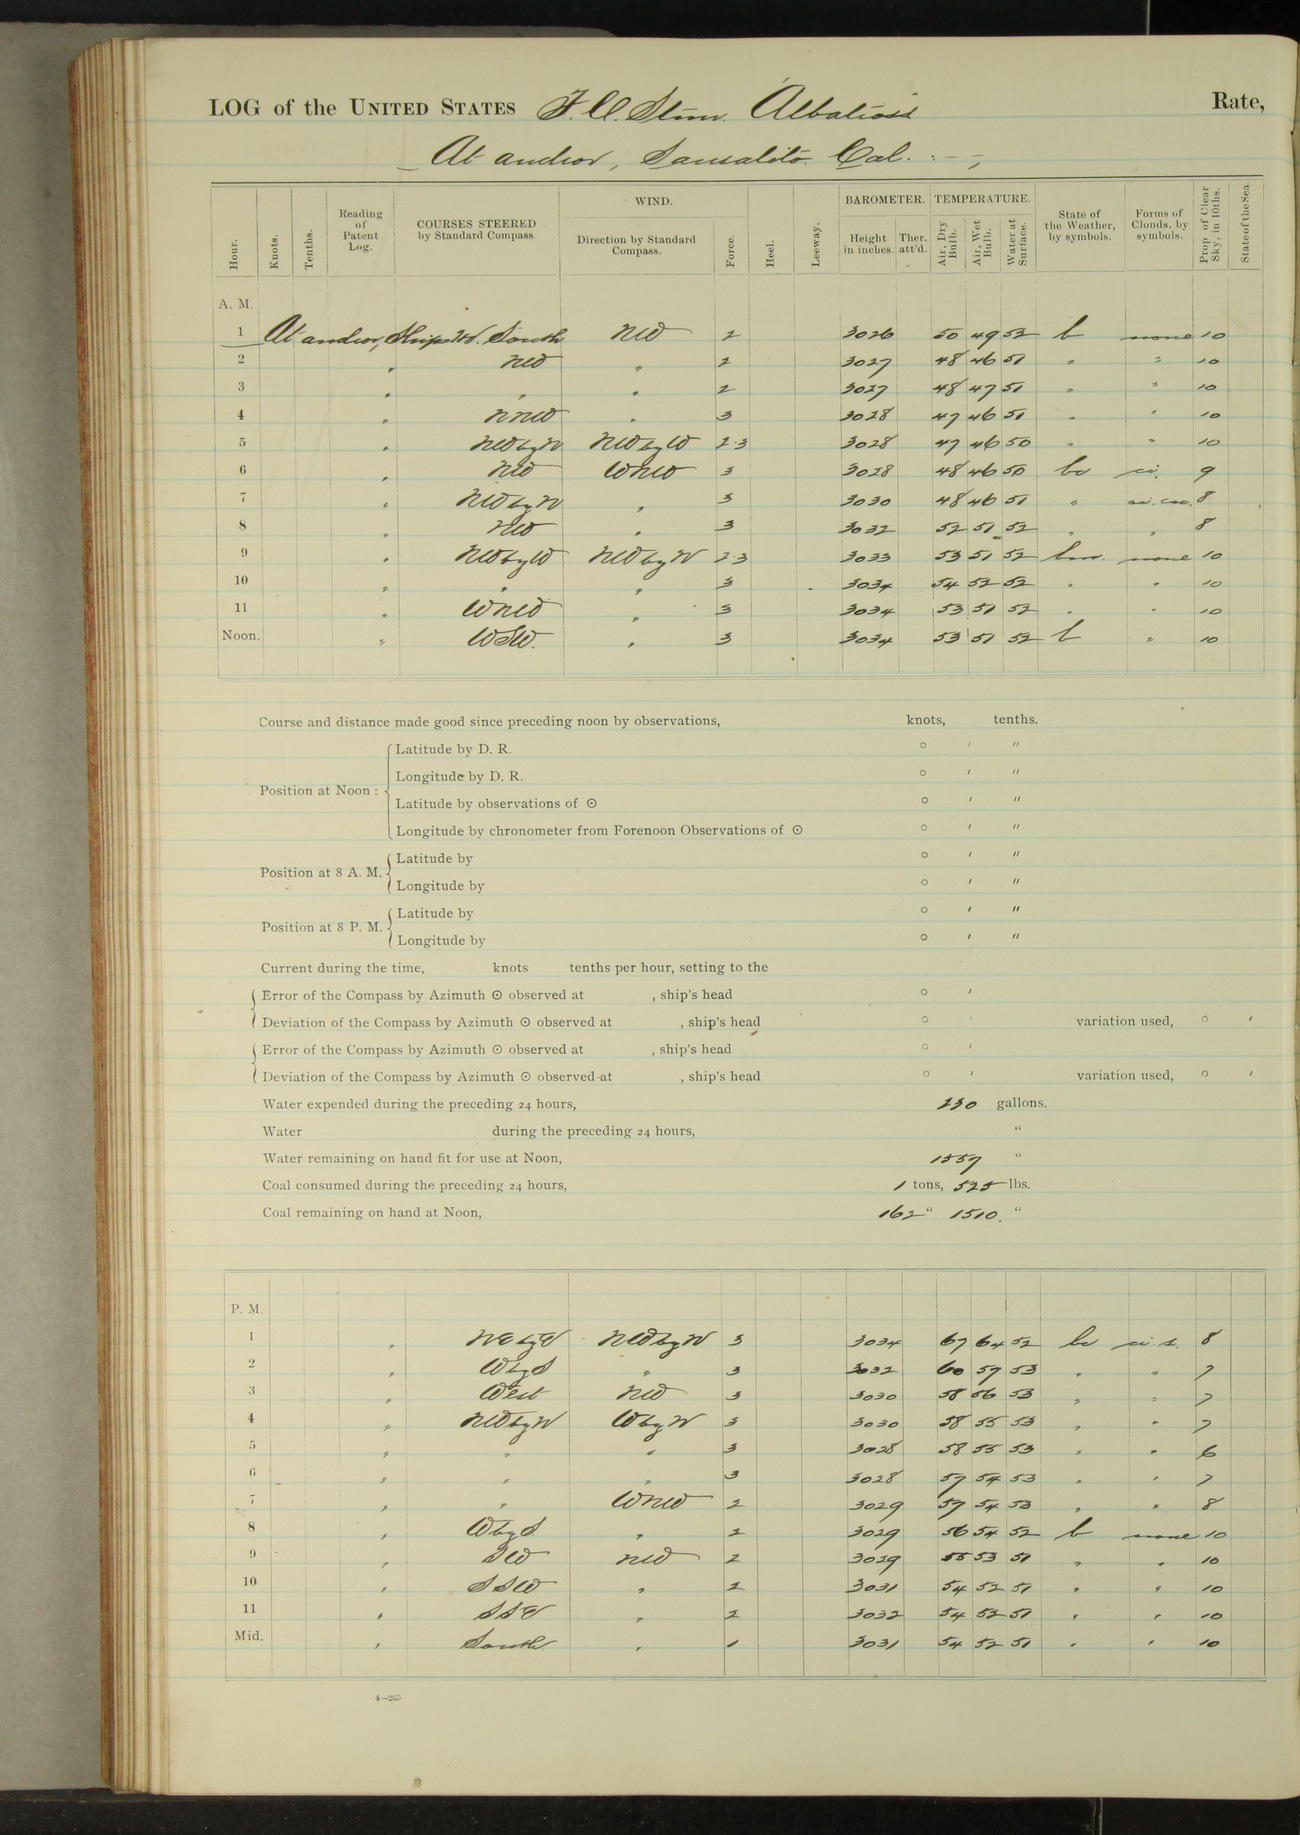 LOG of the UNITED STATES F. C. Stmr. Albatross Rate,
At anchor, Sausalito. Cal.
Hour. Knots. Tenths. Reading of Patent Log. COURSES STEERED by Standard Compass. WIND. Direction by Standard Compass. Force. Heel. Leeway. BAROMETER. Height in inches. Ther. att'd. TEMPERATURE. Air, Dry Bulb. Air, Wet Bulb. Water at Surface. State of the Weather, by symbols. Forms of Clouds, by symbols. Prop. of Clear Sky, in 10ths. State of the Sea.
A. M.
1 At anchor, Ships Hd. South NW 2 3026 50 49 52 b none 10
2 " NW " 2 3027 48 46 51 " " 10
3 " " " 2 3027 48 47 51 " " 10
4 " NNW " 3 3028 47 46 51 " " 10
5 " NWbyN NWbyW 2-3 3028 47 46 50 " " 10
6 " NW WNW 3 3028 48 46 50 bc ci. 9
7 " NWbyN " 3 3030 48 46 51 " ci. cu. 8
8 " NW " 3 3032 52 51 52 " " 8
9 " NWbyW NWbyN 2-3 3033 53 51 52 bm. none 10
10 " " " 3 3034 54 52 52 " " 10
11 " WNW " 3 3034 53 51 52 " " 10
Noon. " WSW. " 3 3034 53 51 52 b " 10
Course and distance made good since preceding noon by observations, knots, tenths.
Position at Noon :
Latitude by D. R. ° ′ ″
Longitude by D. R. ° ′ ″
Latitude by observations of ☉ ° ′ ″
Longitude by chronometer from Forenoon Observations of ☉ ° ′ ″
Position at 8 A. M.
Latitude by ° ′ ″
Longitude by ° ′ ″
Position at 8 P. M.
Latitude by ° ′ ″
Longitude by ° ′ ″
Current during the time, knots tenths per hour, setting to the
Error of the Compass by Azimuth ☉ observed at , ship's head ° ′
Deviation of the Compass by Azimuth ☉ observed at , ship's head ° ′ variation used, ° ′
Error of the Compass by Azimuth ☉ observed at , ship's head ° ′
Deviation of the Compass by Azimuth ☉ observed at , ship's head ° ′ variation used, ° ′
Water expended during the preceding 24 hours, 230 gallons.
Water during the preceding 24 hours, "
Water remaining on hand fit for use at Noon, 1557 "
Coal consumed during the preceding 24 hours, 1 tons, 525 lbs.
Coal remaining on hand at Noon, 162 " 1510. "
P. M.
1 " NWbyN 3 3034 67 64 52 bc ci. s. 8
2 " WbyS " 3 3032 60 57 53 " " 7
3 " West NW 3 3030 58 56 53 " " 7
4 " NWbyN WbyN 3 3030 58 55 53 " " 7
5 " " " 3 3028 58 55 53 " " 6
6 " " " 3 3028 57 54 53 " " 7
7 " " WNW 2 3029 57 54 53 " " 8
8 " WbyS " 2 3029 56 54 52 b none 10
9 " SW NW 2 3029 55 53 51 " " 10
10 " SSW " 2 3031 54 52 51 " " 10
11 " SSE " 2 3032 54 52 51 " " 10
Mid. " South " 1 3031 54 52 51 " " 10
4—265